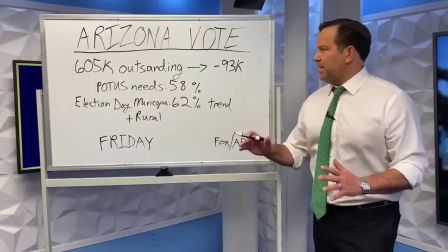 ARIZONA VOTE
605K outsanding → -93K
POTUS needs: 58%
Election Day Maricopa: 62% trend
+ Rural
FRIDAY Fox/A